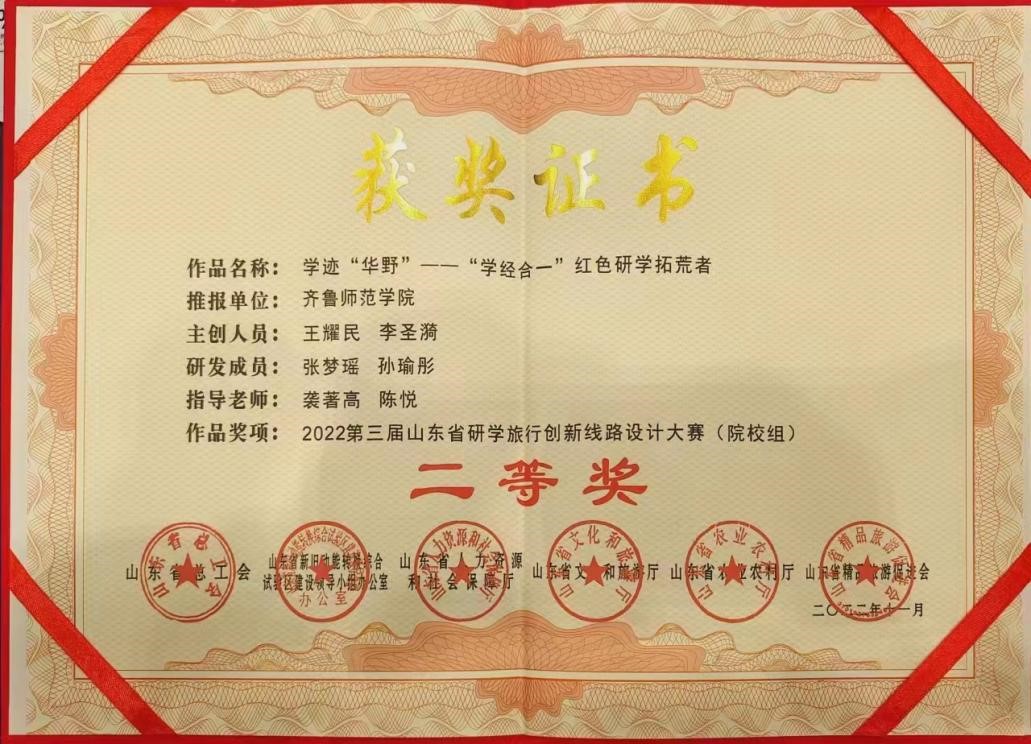 获奖证书
作品名称：学迹“华野”——“学经合一”红色研学拓荒者
推报单位：齐鲁师范学院
主创人员：王耀民 李圣漪
研发成员：张梦瑶 孙瑜彤
指导老师：袭著高 陈悦
作品奖项：2022第三届山东省研学旅行创新线路设计大赛（院校组）
二等奖
山东省总工会
山东省新旧动能转换综合
试验区建设领导小组办公室
山东省人力资源
和社会保障厅
山东省文化和旅游厅
山东省农业农村厅
山东省精品旅游促进会
办公室
二〇二二年十一月